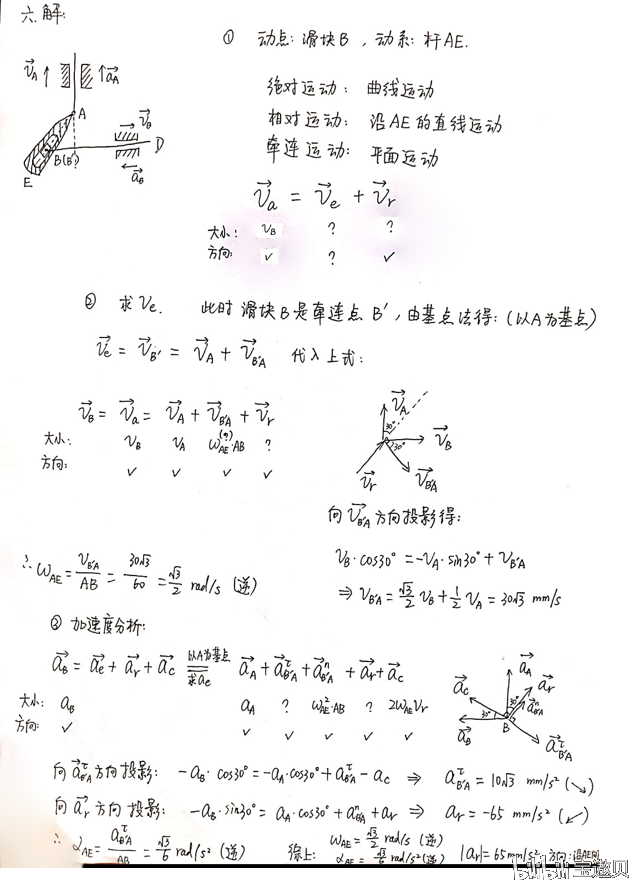 六.解:
① 动点:滑块B , 动系:杆AE.
绝对运动: 曲线运动
相对运动: 沿AE的直线运动
牵连运动: 平面运动
v⃗A ↑ ↑a⃗A
A
v⃗B
B(B')
D
a⃗B
E
v⃗a = v⃗e + v⃗r
大小: vB ? ?
方向: ✓ ? ✓
② 求 ve. 此时滑块B是牵连点 B', 由基点法得:(以A为基点)
v⃗e = v⃗B' = v⃗A + v⃗B'A 代入上式:
v⃗B = v⃗a = v⃗A + v⃗B'A + v⃗r
大小: vB vA ωAE(?)·AB ?
方向: ✓ ✓ ✓ ✓
v⃗A
30°
v⃗B
30°
v⃗r
v⃗B'A
向v⃗B'A方向投影得:
vB·cos30° = -vA·sin30° + vB'A
⇒ vB'A = √3/2 vB + 1/2 vA = 30√3 mm/s
∴ ωAE = vB'A/AB = 30√3/60 = √3/2 rad/s (逆)
③ 加速度分析:
a⃗B = a⃗e + a⃗r + a⃗c 以A为基点 求ae a⃗A + a⃗τB'A + a⃗nB'A + a⃗r + a⃗c
大小: aB aA ? ω²AE·AB ? 2ωAEvr
方向: ✓ ✓ ✓ ✓ ✓ ✓
a⃗A
a⃗r
a⃗c
30°
a⃗nB'A
30°
a⃗B
B
a⃗τB'A
向a⃗τB'A方向投影: -aB·cos30° = -aA·cos30° + aτB'A - ac ⇒ aτB'A = 10√3 mm/s² (↘)
向a⃗r方向投影: -aB·sin30° = aA·cos30° + anB'A + ar ⇒ ar = -65 mm/s² (↙)
∴ αAE = aτB'A/AB = √3/6 rad/s² (逆) 综上: ωAE = √3/2 rad/s (逆) αAE = √3/6 rad/s² (逆) |ar| = 65mm/s² 方向:沿AE向
bilibili 宝璐贝